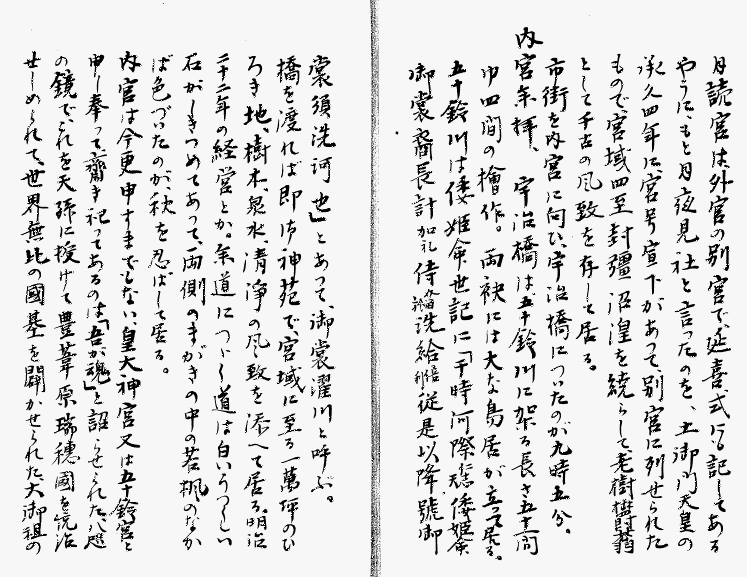 月読宮は、外宮の別宮で、延喜式にも記してある
やうに、もと月夜見社と言ったのを、土御門天皇の
承久四年に、宮号宣下があって、別宮に列せられた
もので、宮域四至封疆沼湟を繞らして、老樹欝蓊
として千古の風致を存して居る。
市街を内宮に向ひ、宇治橋についたのが九時五分。
内宮参拝、宇治橋は、五十鈴川に架る長さ五十間
巾四間の檜作。両袂には大な鳥居が立って居る。
五十鈴川は倭姫命世記に「于時河際 倭姫命
御裳裔長計加礼侍 洗給 従是以降號御
裳須洗河也」とあって、御裳濯川と呼ぶ。
橋を渡れば即ち神苑で、宮域に至る一萬坪のひ
ろき地樹木、泉水、清浄の風致を添へて居る。明治
二十二年の経営とか。参道につゞく道は白いうつくしい
石がしきつめてあって、両側のまがきの中の若楓のなか
ば色づいたのが、秋を忍ばして居る。
内宮は今更申すまでもない、皇大神宮又は五十鈴宮と
申し奉って、齋き祀ってあるのは、「吾が魂」と詔らせられた、八咫
の鏡で、これを天孫に授けて豊葦原瑞穂國を統治
せしめられて、世界無比の國基を開かせられた大御祖の